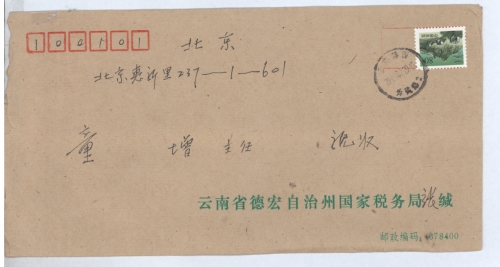 100101
北京
北京惠新里237—1—601
童增主任 收
云南省德宏自治州国家税务局 张缄
邮政编码：678400